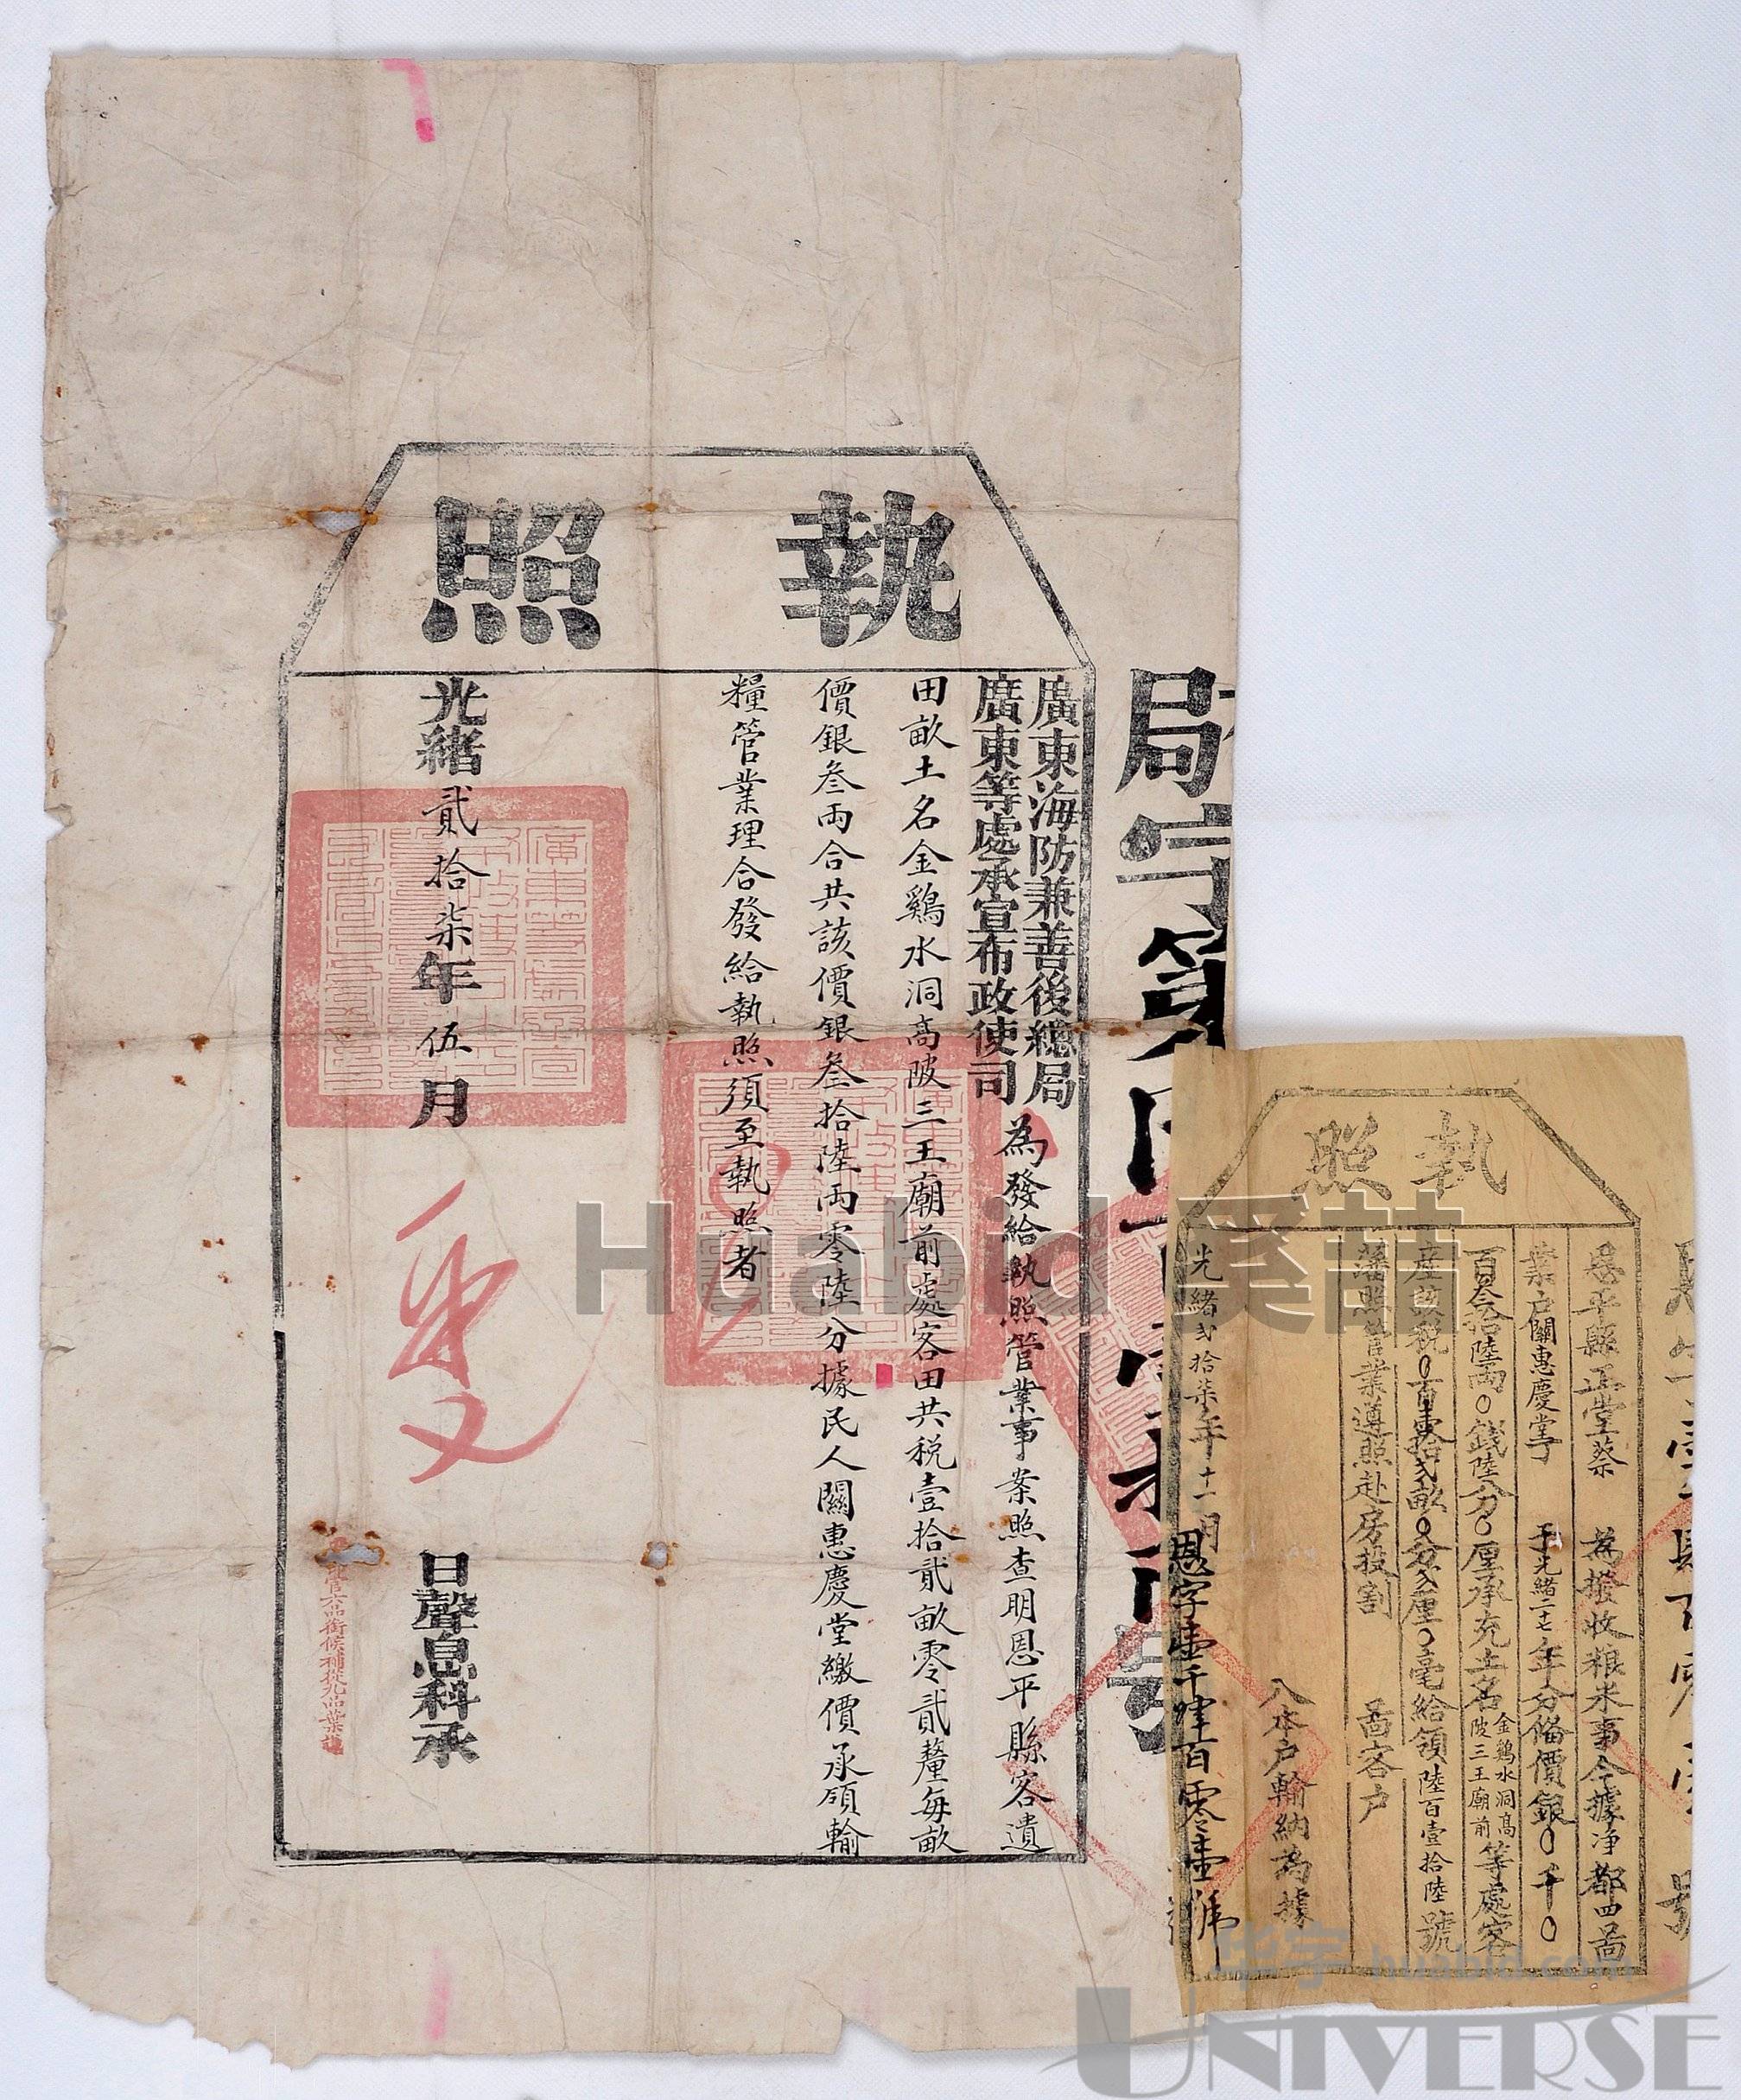 執照
廣東海防兼善後總局
廣東等處承宣布政使司
為發給執照管業事案照查明恩平縣客遺
田畝土名金鷄水洞高陂三王廟前處客田共税壹拾貳畝零貳釐每畝
價銀叁兩合共該價銀叁拾陸兩零陸分據民人關惠慶堂繳價承領輸
糧管業理合發給執照須至執照者
光緒貳拾柒年伍月
日聲息科承
六品銜候補從九品葉
局字第
執照
恩平縣正堂蔡 為撥收粮米事今據净都四啚
業户關惠慶堂丁 于光緒二十七年分備價銀0千0
百叁拾陸兩0錢陸分0厘承充土名金鷄水洞高陂三王廟前等處客
產該税0百壹拾弍畝0分弍厘0毫給領陸百壹拾陸號
藩照管業遵照赴房投割 啚客户
八本户輸納為據
光緒弍拾柒年十一月
恩字壹千肆百零壹號
Huabid
华宇 huabid.com
UNIVERSE